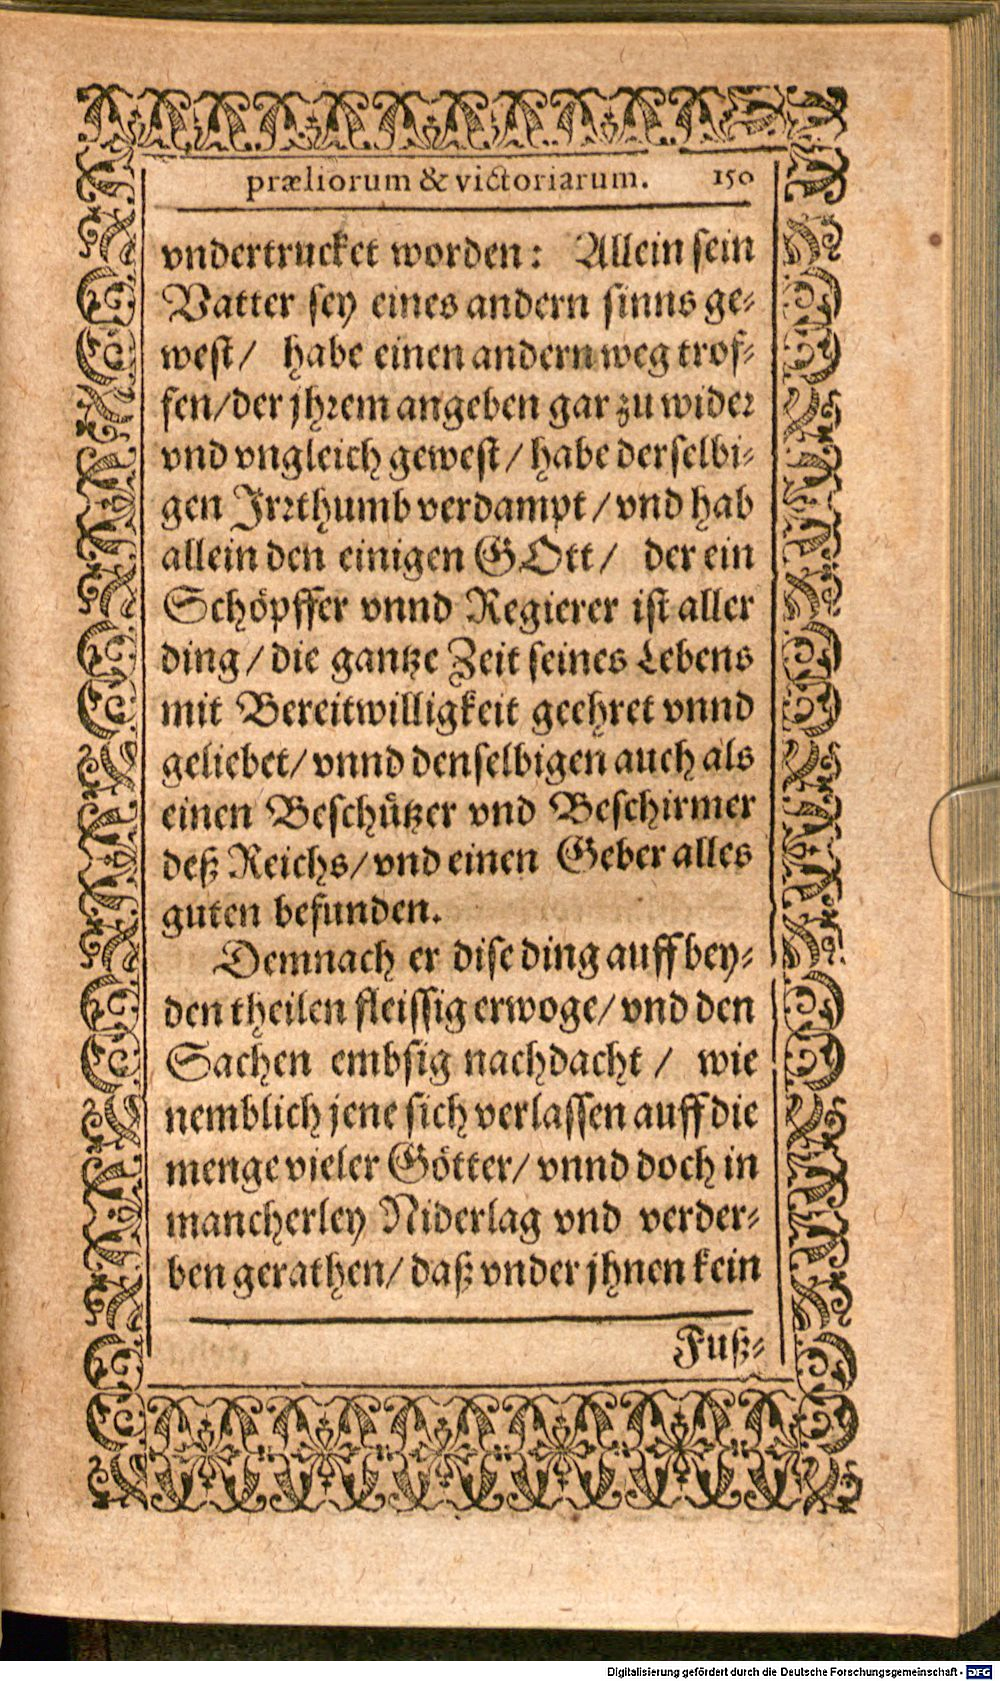 præliorum & victoriarum. 150
vndertrucket worden: Allein sein
Vatter sey eines andern sinns ge-
west/ habe einen andern weg trof-
fen/der jhrem angeben gar zu wider
vnd vngleich gewest/habe derselbi-
gen Irrthumb verdampt/vnd hab
allein den einigen GOtt/ der ein
Schöpffer vnnd Regierer ist aller
ding/die gantze Zeit seines Lebens
mit Bereitwilligkeit geehret vnnd
geliebet/vnnd denselbigen auch als
einen Beschützer vnd Beschirmer
deß Reichs/vnd einen Geber alles
guten befunden.
Demnach er dise ding auff bey-
den theilen fleissig erwoge/vnd den
Sachen embsig nachdacht/ wie
nemblich jene sich verlassen auff die
menge vieler Götter/vnnd doch in
mancherley Niderlag vnd verder-
ben gerathen/daß vnder jhnen kein
Fuß-
Digitalisierung gefördert durch die Deutsche Forschungsgemeinschaft - DFG